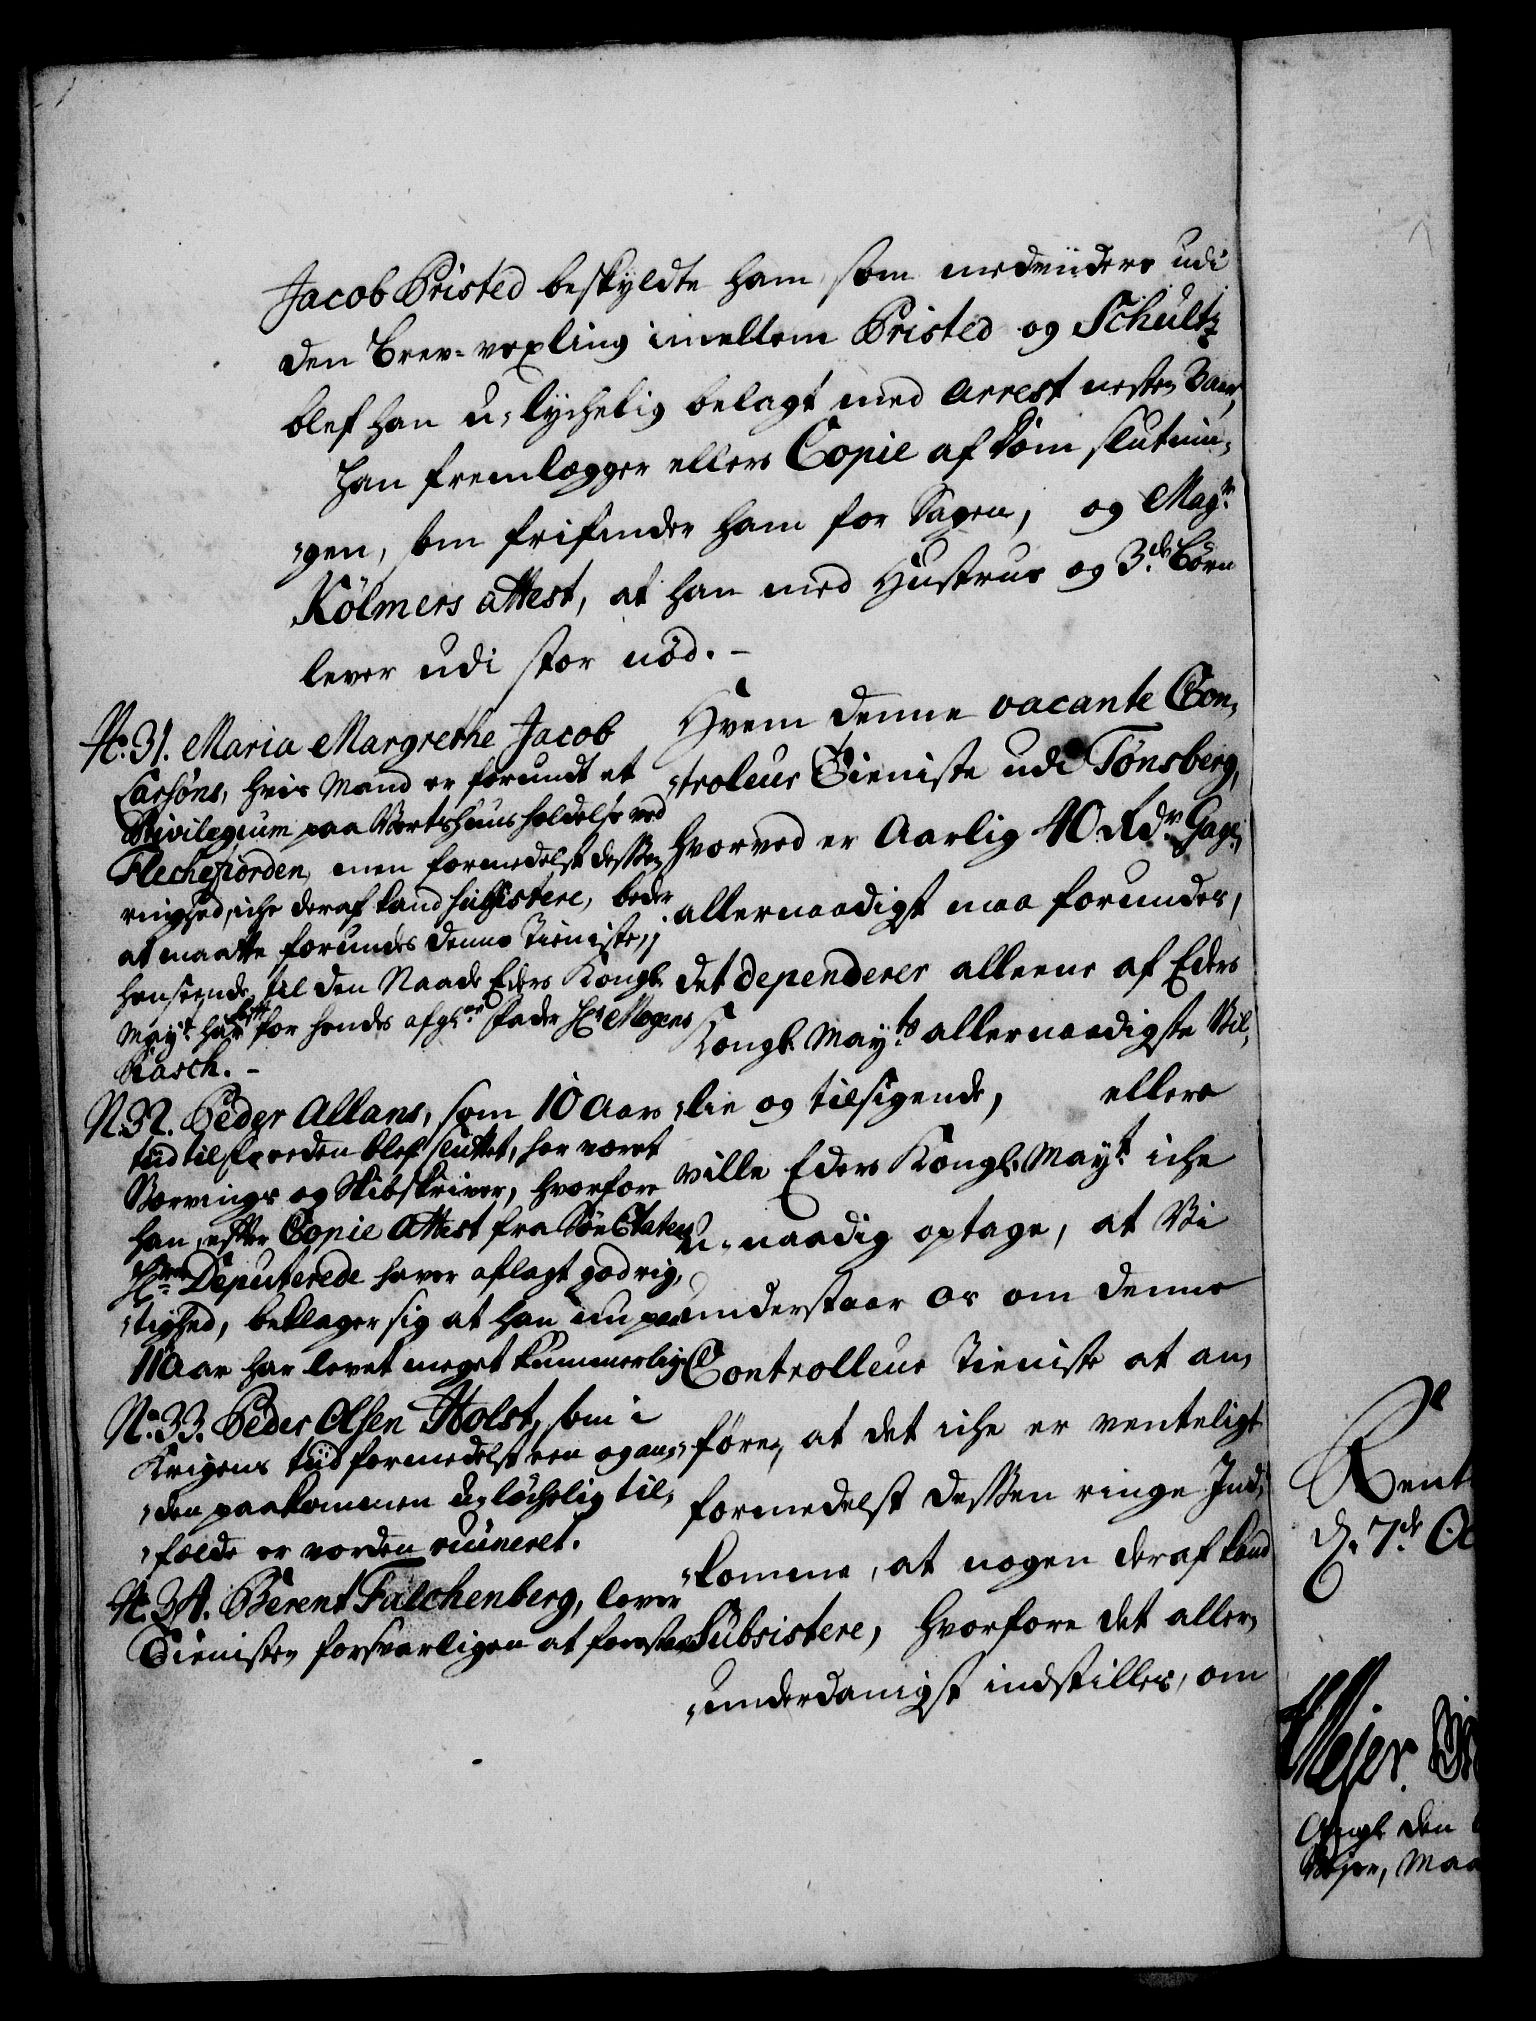 Jacob Bristed beskyldte ham som medviidere udi
den brev-vexling imellem Bristed og Schultz
blef han u-lychelig belagt med Arrest nesten 3 aar,
Han fremlægger ellers Copie af dom slutnin-
-gen, som frifinder ham for Sagen, og Magr.
Kölmers attest, at han med Hustrue og 3de Börn
lever udi stor nöd. -
No. 31. Maria Margrethe Jacob
Larsöns, hvis Mand er forundt et
Privilegium paa Vertshuus holdelse ved
Flechefiorden, men formedelst dessen
ringhed, iche deraf kand subsistere, beder
at maatte forundes denne Tieniste, i
henseende til den Naade Eders Kongl.
Mayt. har for hendes afgl. Fader Hr. Mogens
Rasch. -
N. 32. Peder Allans, som 10 Aars
tiid til freden blef sluttet, har været
Værvings og Skibskriver, hvorfore
han, efter Copie Attest fra Söe Etatens
Hrr. Deputerede haver aflagt god rig-
-tighed, beklager sig at han nu paa
11 Aar har levet meget kummerlig
No. 33. Peder Olsen Holst, som i
Krigens tiid formedelst een og an-
-den paakommen u-löchelig til-
-fælde er vorden ruineret.
No. 34. Berent Falchenberg, lover
Tienisten forsvarligen at forestaae
Hvem denne vacante Con-
-troleur Tieniste udi Tönsberg,
hvorved er Aarlig 40 Rdr. Gage,
allernaadigst maa forundes,
det dependerer alleene af Eders
Kongl. Mayts. allernaadigste Vil-
-lie og tilsigende, ellers
ville Eders Kongl. Mayt. iche
u-naadig optage, at Vi
understaar os om denne
Controlleur Tieniste at an-
-före, at det iche er venteligt
formedelst dessen ringe Ind-
-komme, at nogen deraf kand
Subsistere, hvorfore det aller-
-underdanigst indstilles, om
Rent
d. 7de Oc
Mejer.
den
Maa